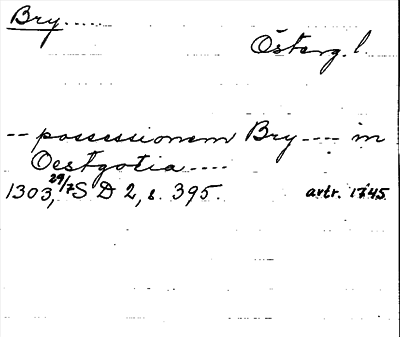 Bry.....
Österg. l.
-- possessionem Bry---- in
Oestgotia ----
1303, 29/7 S D 2, s. 395. avtr. 1745